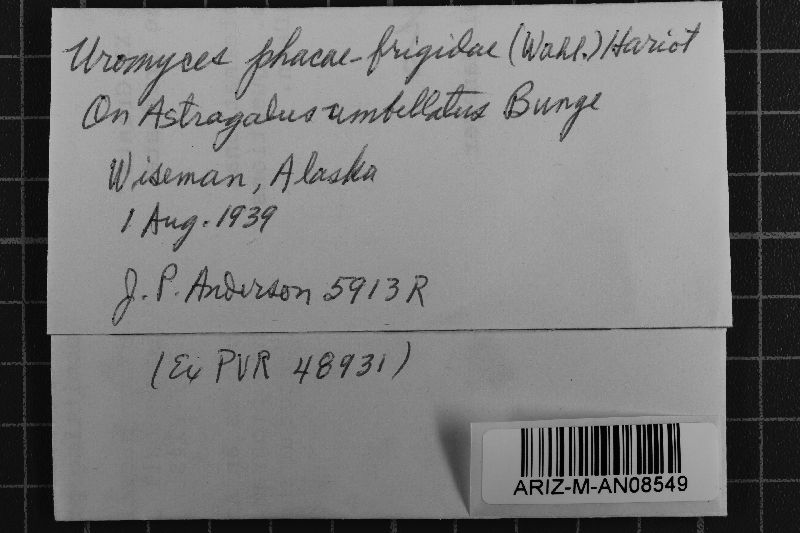 Uromyces phacae-frigidae (Wahl.) Hariot
On Astragalus umbellatus Bunge
Wiseman, Alaska
1 Aug. 1939
J. P. Anderson 5913 R
(Ex PUR 48931)
ARIZ-M-AN08549